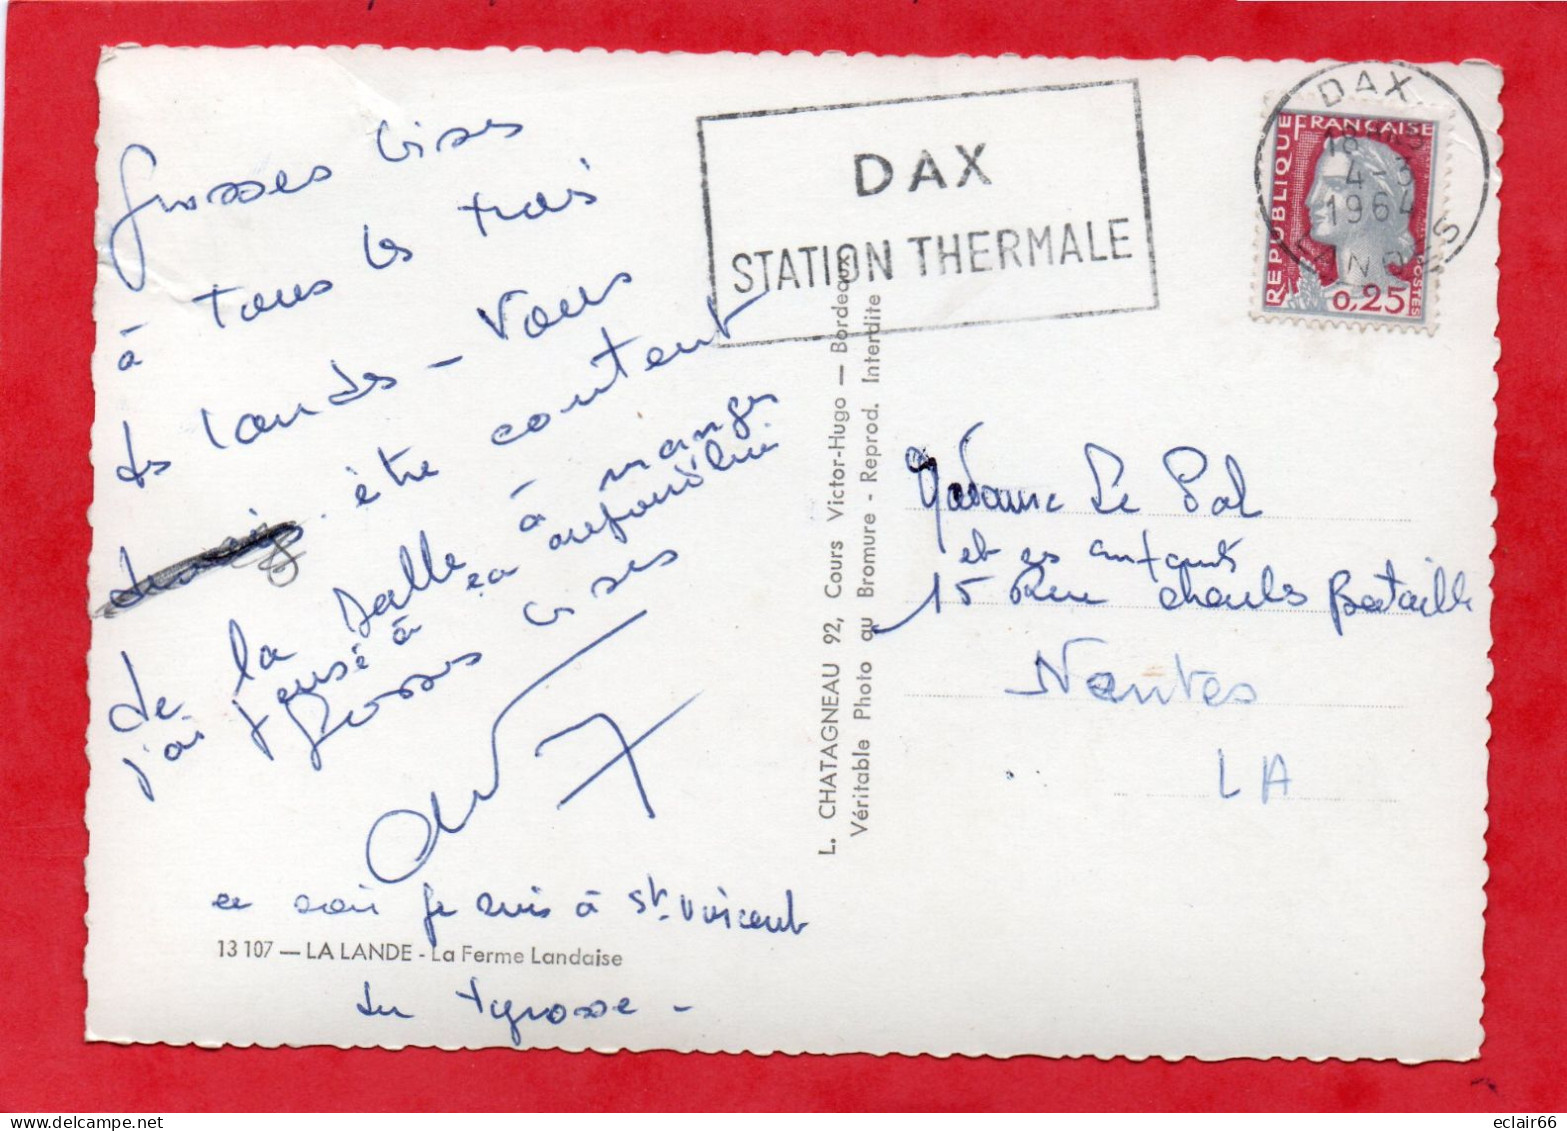 Grosses bises
à tous les trois
des landes - Vous
être content
de la salle à manger
j'ai pensé à ça aujourd'hui
Grosses bises
ce soir je suis à St. Vincent
de tyrosse -
13 107 — LA LANDE - La Ferme Landaise
L. CHATAGNEAU 92, Cours Victor-Hugo — Bordeaux
Véritable Photo au Bromure - Reprod. Interdite
DAX
STATION THERMALE
DAX
18H
4-3
1964
LANDES
REPUBLIQUE
FRANÇAISE
POSTES
0,25
Madame Le Pal
et ses enfants
15 Rue Charles Bataille
Nantes
LA
eclair66